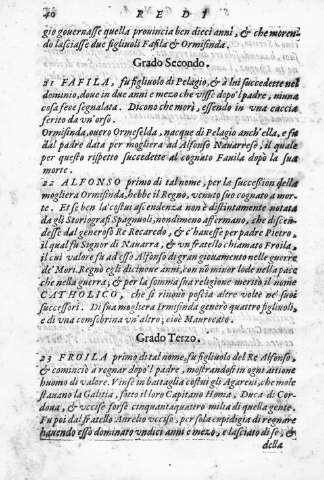 40 R E D I
gio gouernasse quella prouincia ben dieci anni, & che moren-
do lasciasse due figliuoli Fafila & Ormisinda.
Grado Secondo.
21 FAFILA, fu figliuolo di Pelagio, & à lui succedette nel
dominio, doue in due anni e mezo che visse dopo'l padre, niuna
cosa fece segnalata. Dicono che morì, essendo in vna caccia
ferito da vn'orso.
Ormisinda, ouero Ormeselda, nacque di Pelagio anch'ella, e fu
dal padre data per mogliera ad Alfonso Nauarrese, il quale
per questo rispetto succedette al cognato Fauila dopo la sua
morte.
22 ALFONSO primo di tal nome, per la succession della
mogliera Ormisinda, hebbe il Regno, venuto suo cognato a mor-
te. Et se ben la costui ascendenza non è distintamente notata
da gli Storiografi Spagnuoli, nondimeno affermano, che discen-
desse dal generoso Re Recaredo, & c'hauesse per padre Pietro,
il qual fu Signor di Nauarra, & vn fratello chiamato Froila,
il cui valore fu ad esso Alfonso di gran giouamento nelle guerre
de' Mori. Regnò egli dicinoue anni, con nō minor lode nella pace
che nella guerra; & per la somma sua religione meritò il nome
CATHOLICO, che si rinouò poscia altre volte ne' suoi
successori. Di sua mogliera Irmisinda generò quattro figliuoli,
e di vna consobrina vn'altro; cioè Mauregato.
Grado Terzo.
23 FROILA primo di tal nome, fu figliuolo del Re Alfonso,
& cominciò a regnar dopo'l padre, mostrandosi in ogni attione
huomo di valore. Vinse in battaglia costui gli Agareni, che mole
stauano la Galitia, sotto il loro Capitano Homa, Duca di Cor-
doua, & vccise forse cinquantaquattro milia di quella gente.
Fu poi dal fratello Aurelio vcciso, per sola cupidigia di regnare
hauendo esso dominato vndici anni e mezo, e lasciato di se, &
della